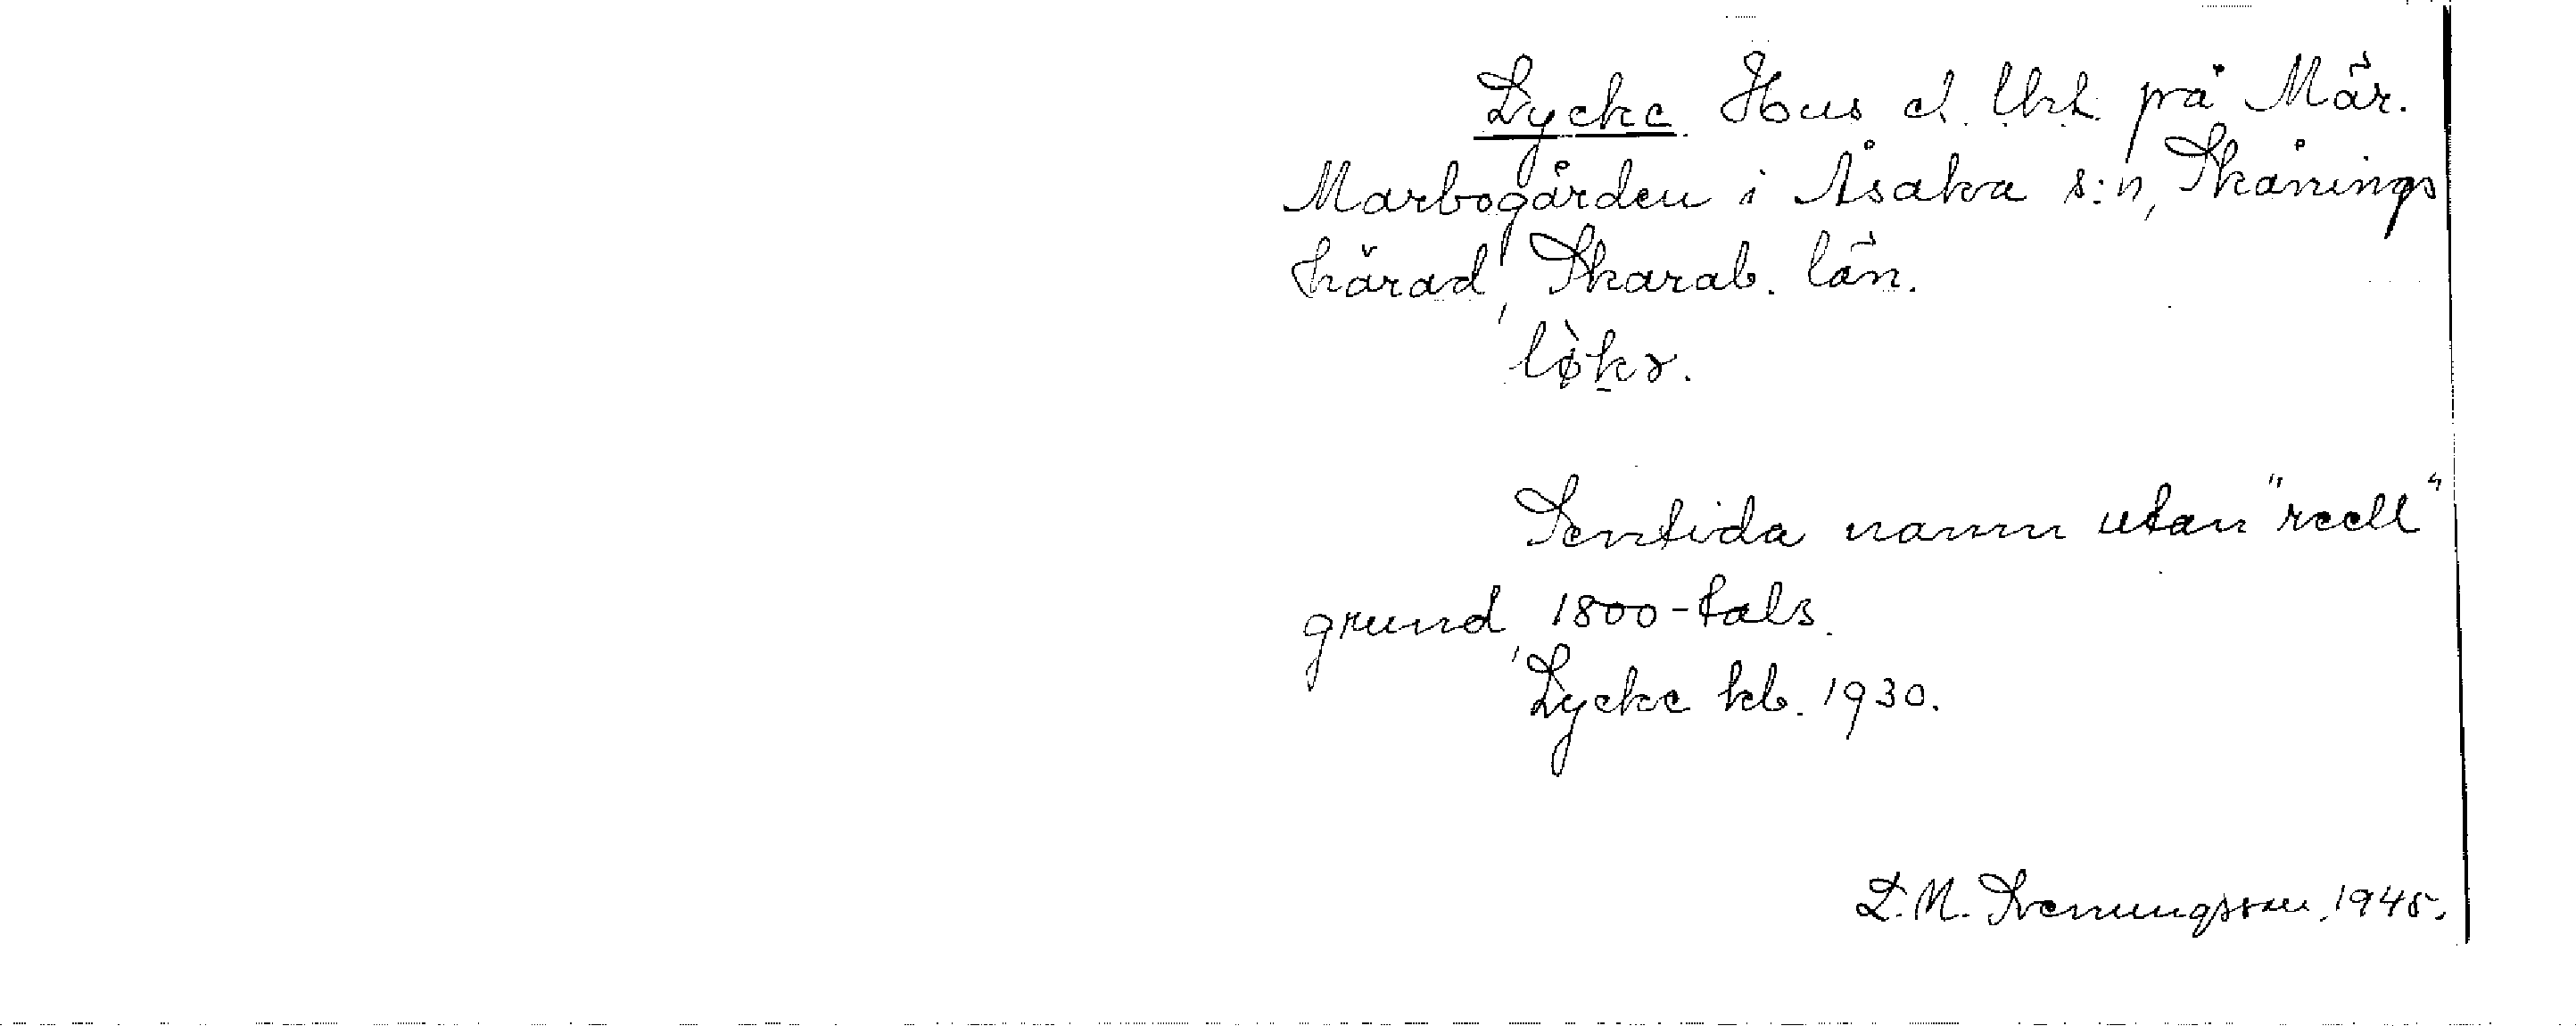 Lycke Hus el. lht. på Mår.
Marbogården i Åsaka s:n, Skånings
härad, Skarab. län.
lø̀kɤ.
Sentida namn utan "reell"
grund, 1800-tals.
Lycke kb. 1930.
L. M. Svenungsson, 1945.